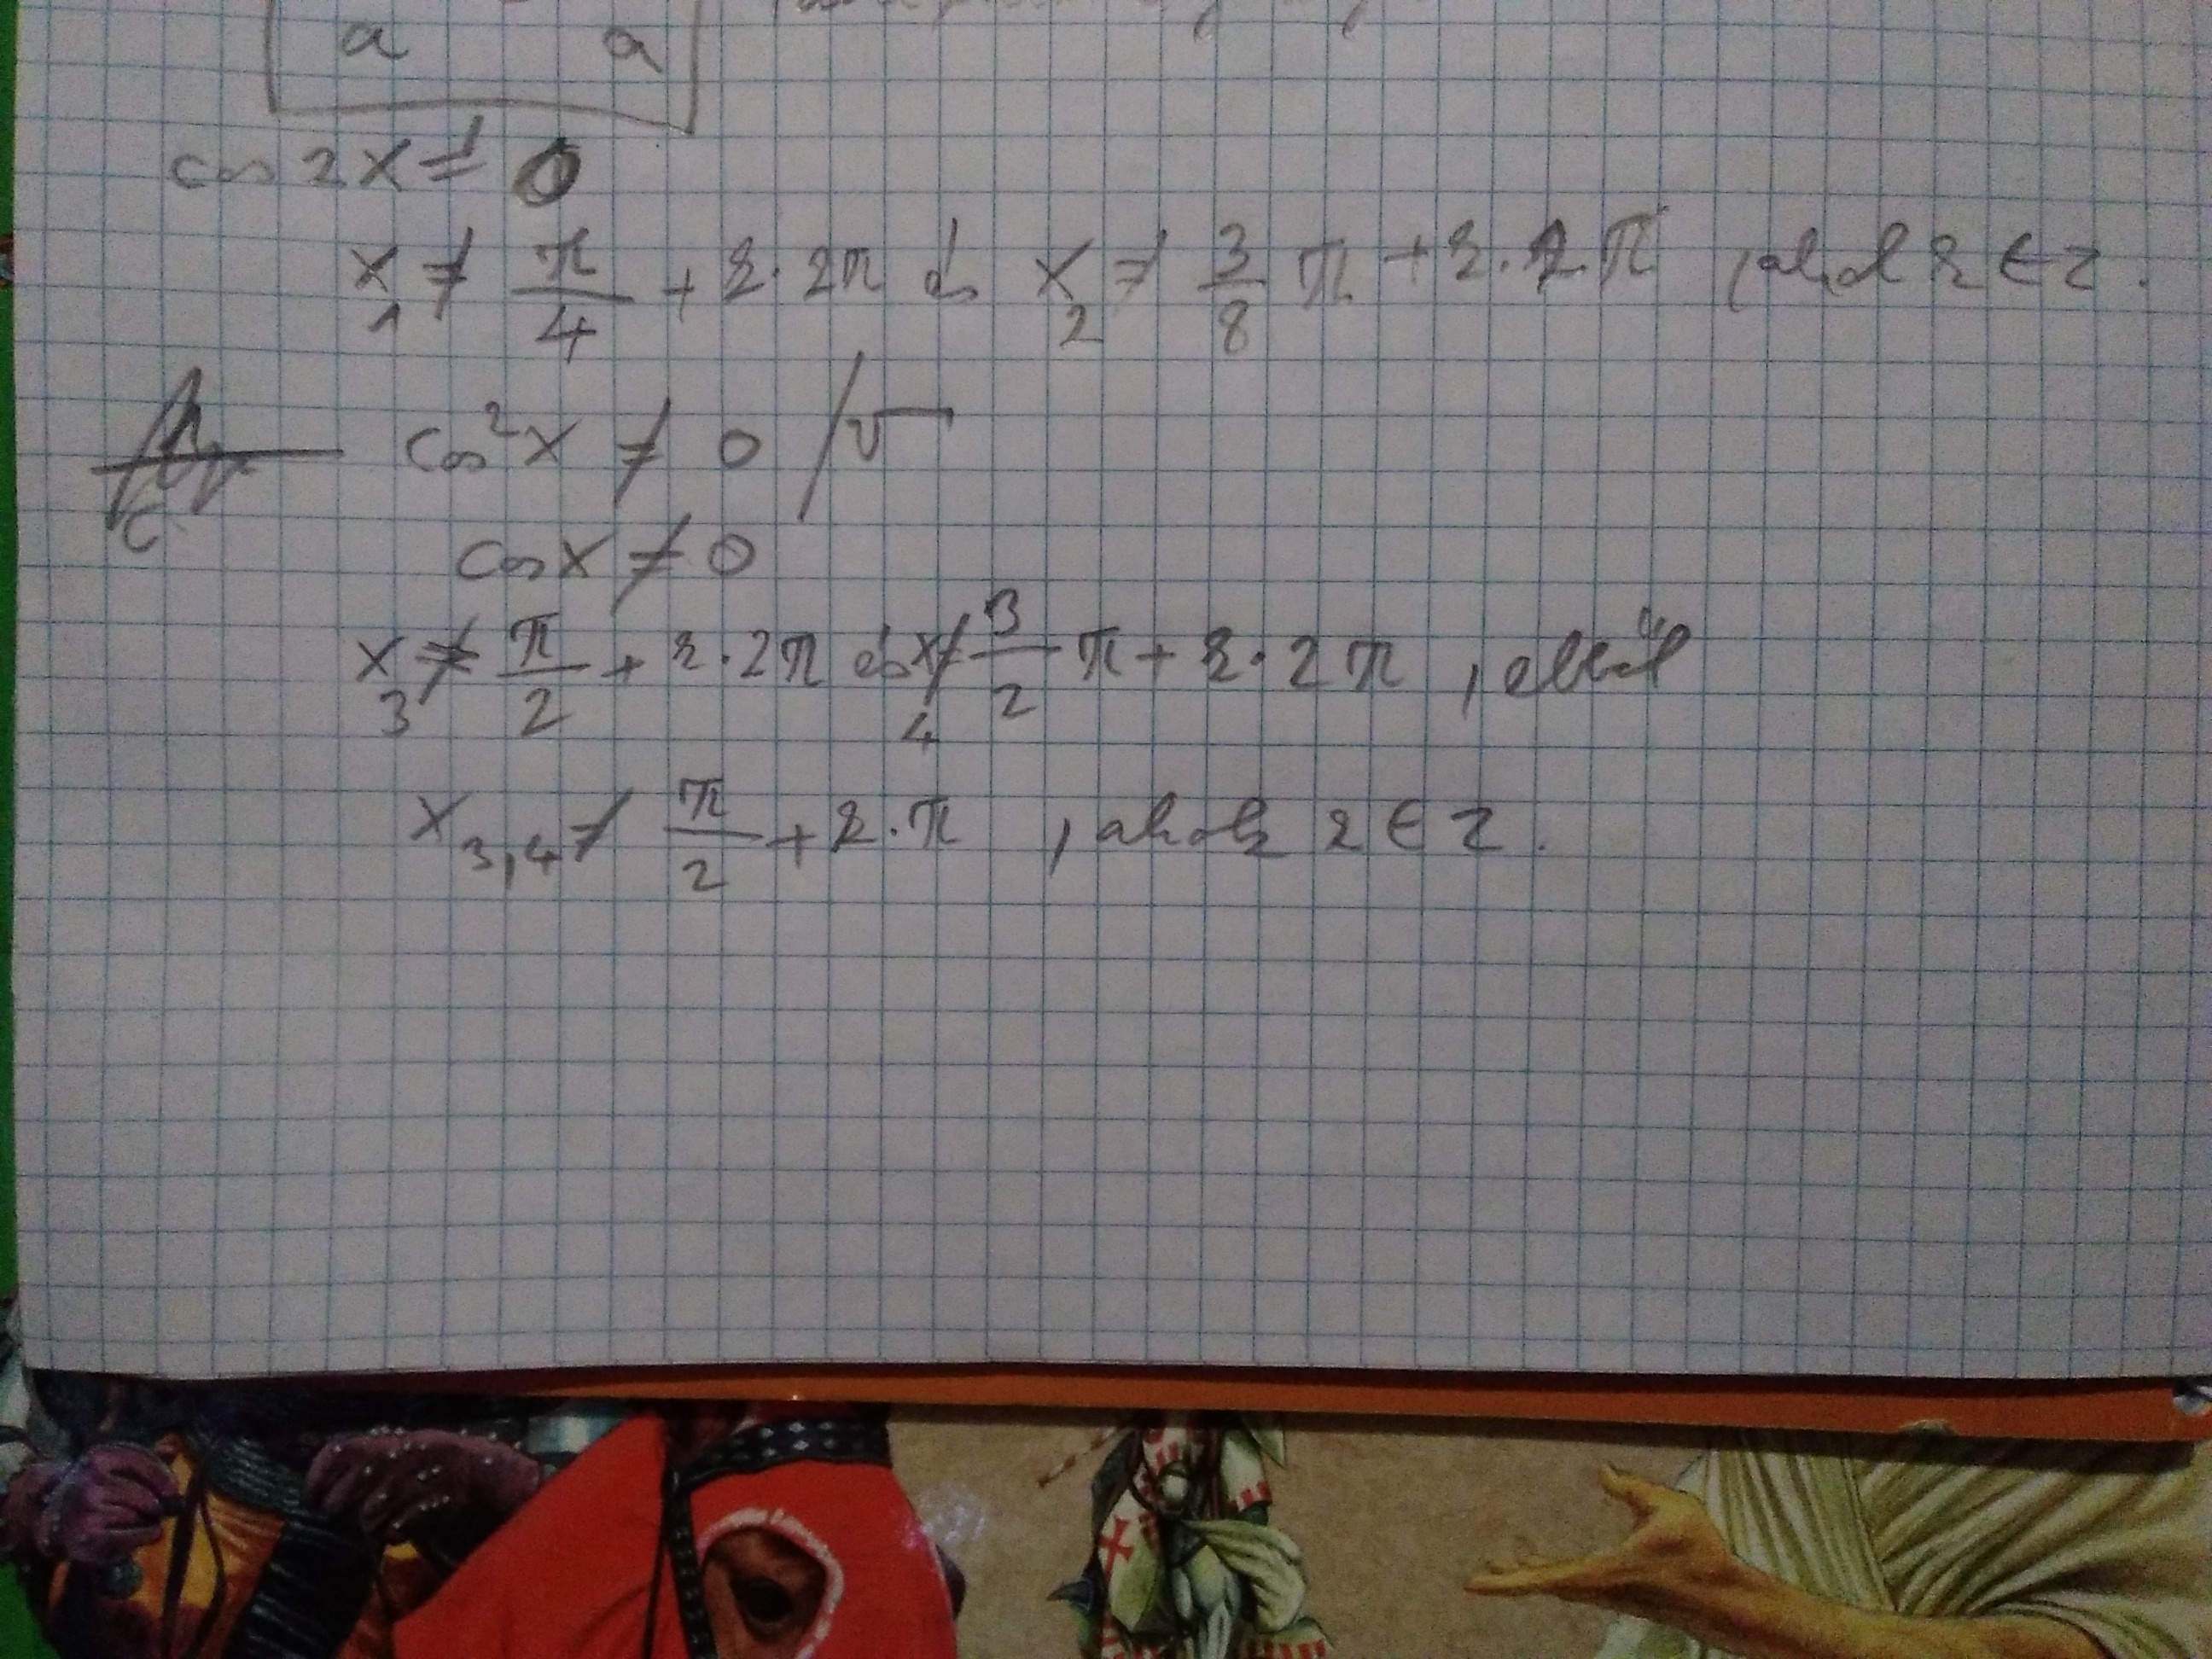 a a
cos 2x ≠ 0
x₁ ≠ π/4 + k·2π és x₂ ≠ 3/8 π + k·2π, ahol k ∈ Z.
cos²x ≠ 0 /√
cosx ≠ 0
x₃ ≠ π/2 + k·2π és x₄ ≠ 3/2 π + k·2π, ebből
x₃,₄ ≠ π/2 + k·π, ahol k ∈ Z.